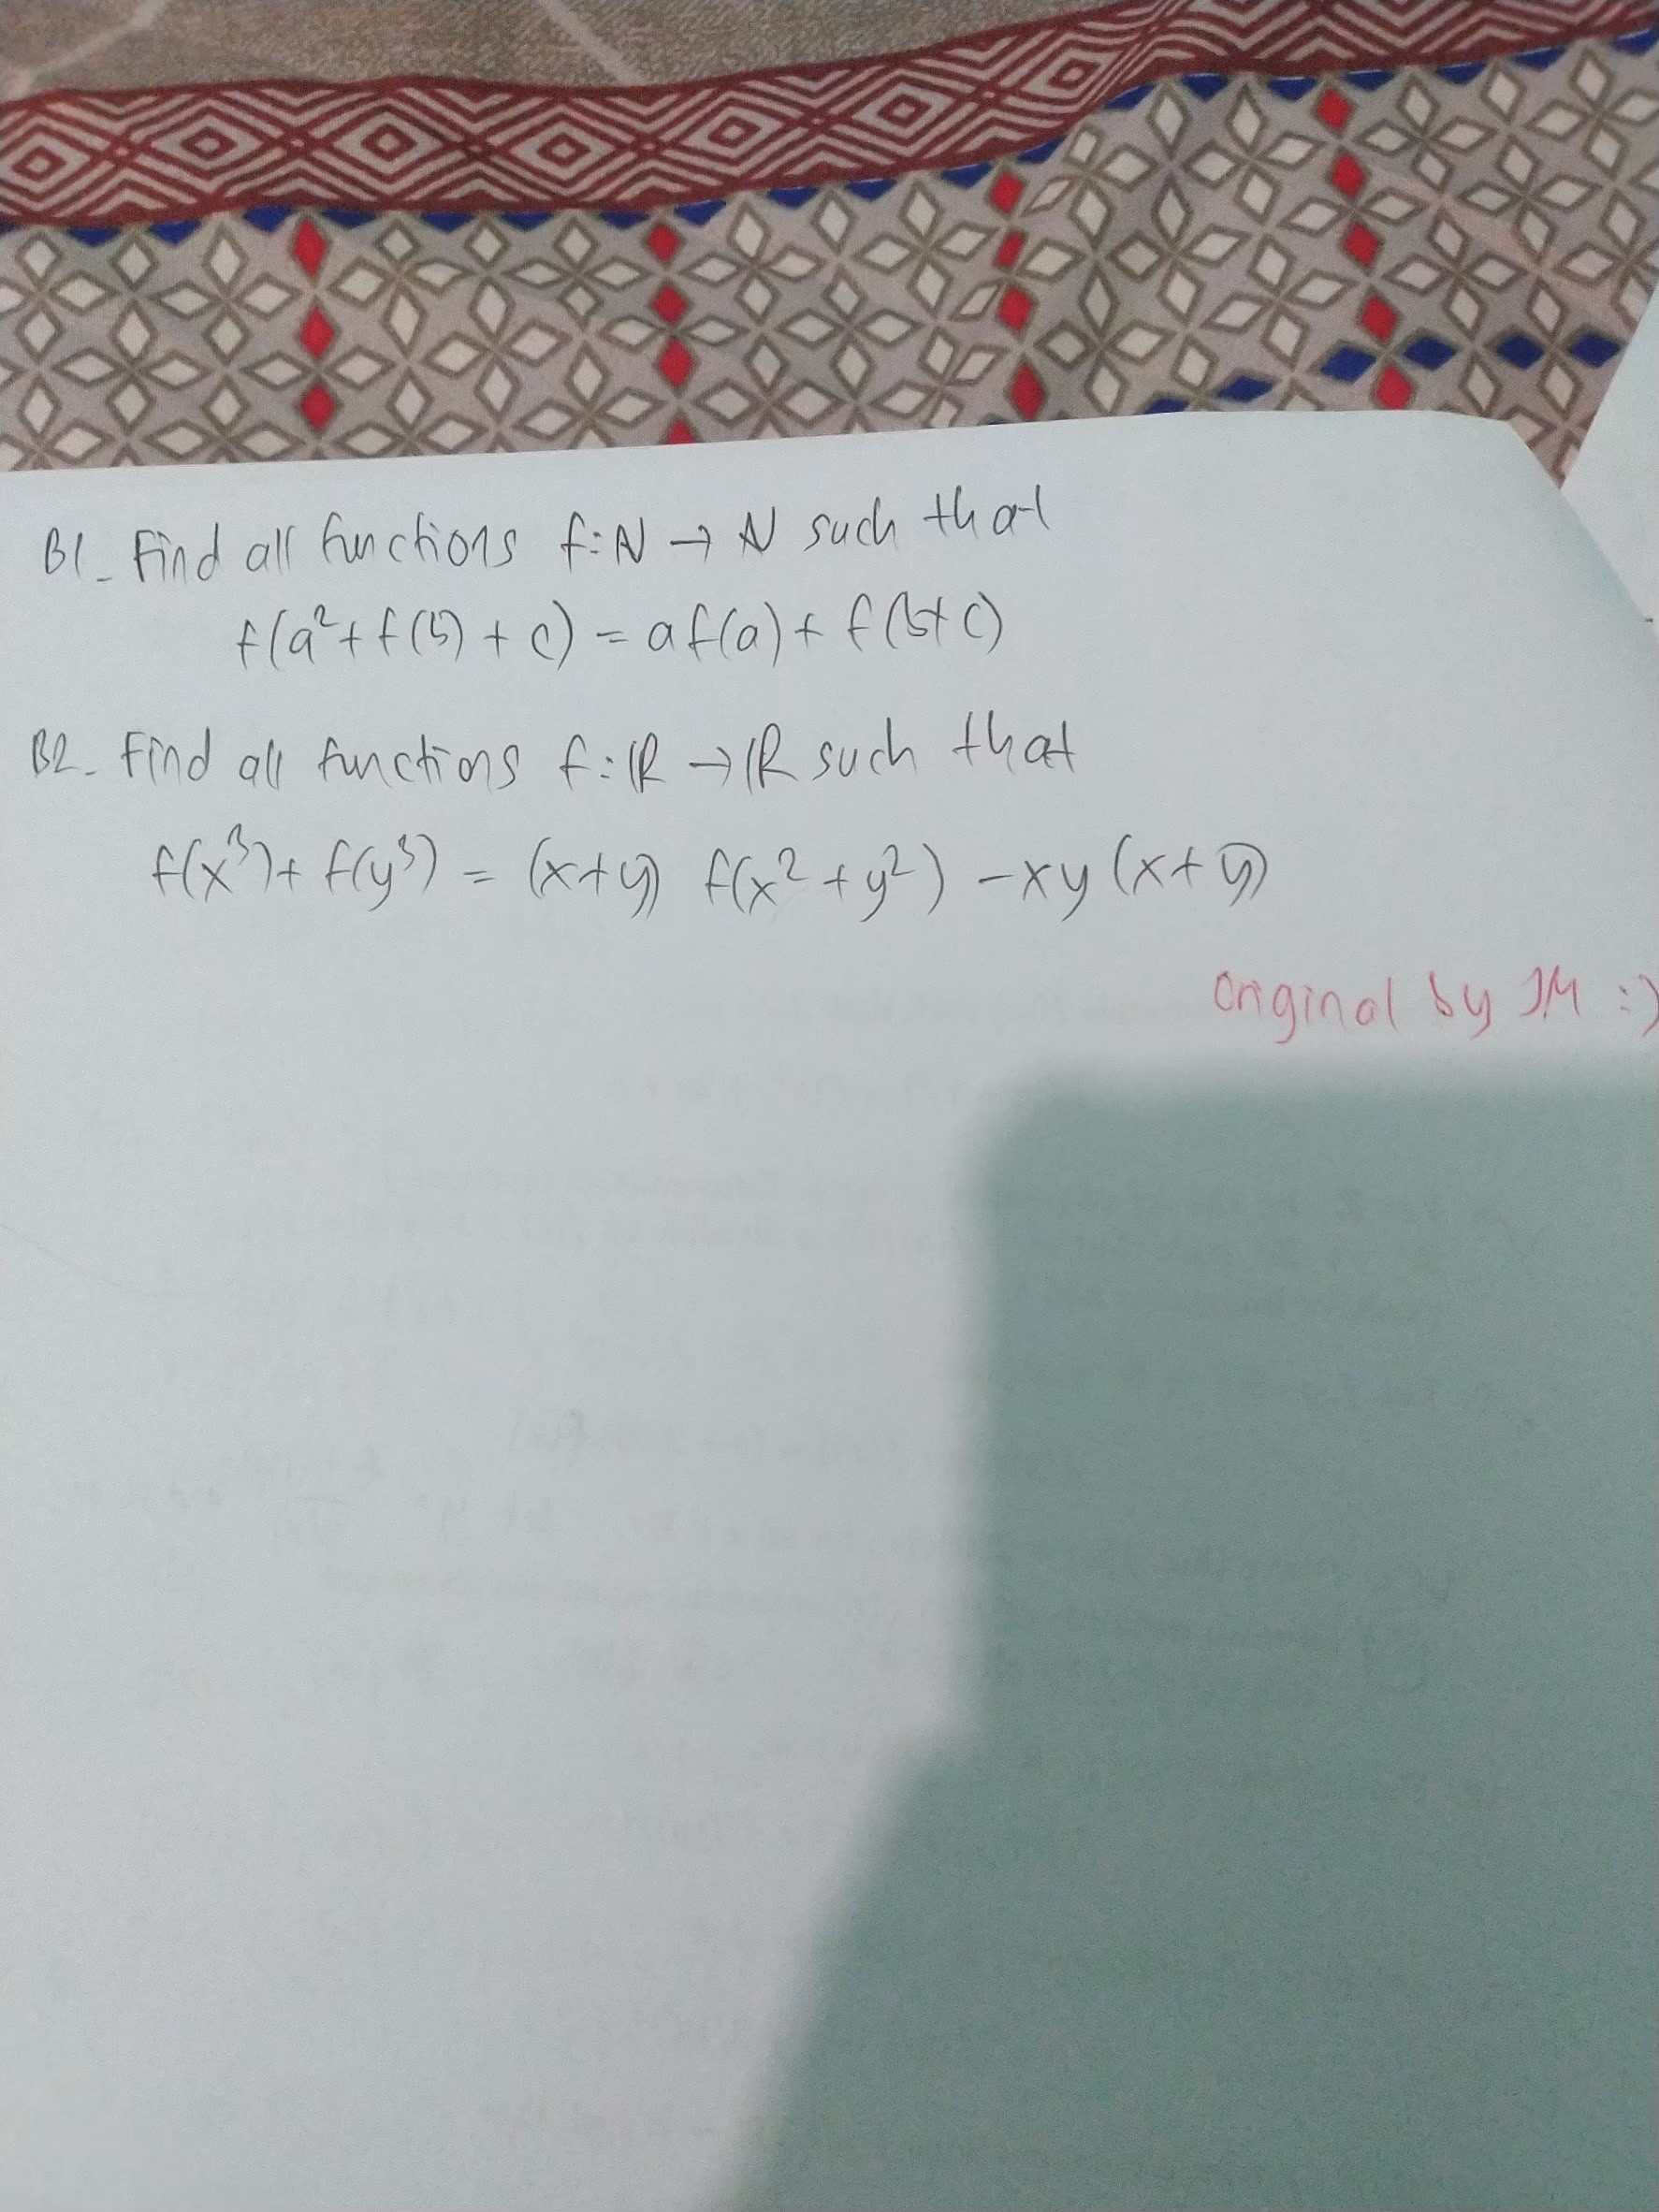 B1_ Find all functions f:N → N such that
f(a²+f(b)+c) = af(a)+f(b+c)
B2_ Find all functions f:ℝ→ℝ such that
f(x³)+f(y³) = (x+y) f(x²+y²) -xy(x+y)
Original by JM :)